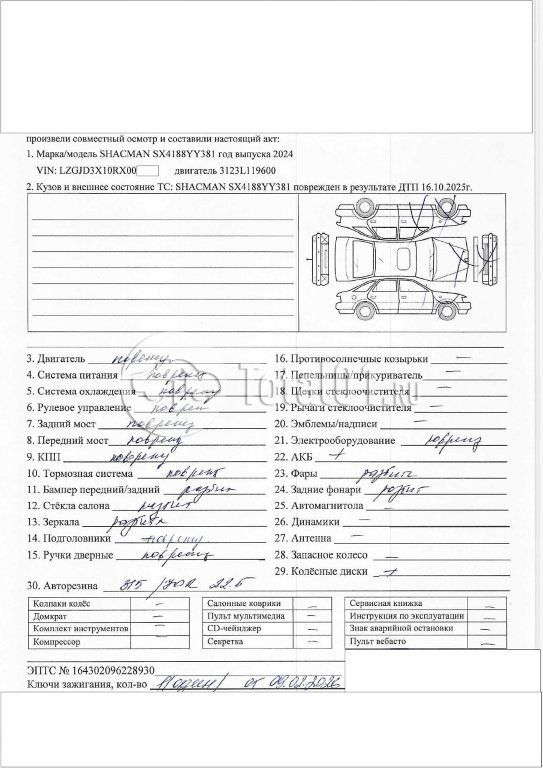 произвели совместный осмотр и составили настоящий акт:
1. Марка/модель SHACMAN SX4188YY381 год выпуска 2024
VIN: LZGJD3X10RX00 двигатель 3123L119600
2. Кузов и внешнее состояние ТС: SHACMAN SX4188YY381 поврежден в результате ДТП 16.10.2025г.
3. Двигатель
4. Система питания поврежд
5. Система охлаждения поврежд
6. Рулевое управление поврежд
7. Задний мост поврежд
8. Передний мост поврежд
9. КПП поврежд
10. Тормозная система поврежд
11. Бампер передний/задний разбит
12. Стёкла салона разбит
13. Зеркала разбиты
14. Подголовники
15. Ручки дверные поврежд
16. Противосолнечные козырьки —
17. Пепельницы/прикуриватель —
18. Щетки стеклоочистителя —
19. Рычаги стеклоочистителя —
20. Эмблемы/надписи —
21. Электрооборудование поврежд
22. АКБ +
23. Фары разбиты
24. Задние фонари разбит
25. Автомагнитола —
26. Динамики —
27. Антенна —
28. Запасное колесо —
29. Колёсные диски +
30. Авторезина 315/70R 22.5
Total01.ru
Колпаки колёс —
Домкрат —
Комплект инструментов —
Компрессор —
Салонные коврики —
Пульт мультимедиа —
CD-чейнджер —
Секретка —
Сервисная книжка —
Инструкция по эксплуатации —
Знак аварийной остановки —
Пульт вебасто —
ЭПТС № 164302096228930
Ключи зажигания, кол-во 1 /один/ от 09.02.2026